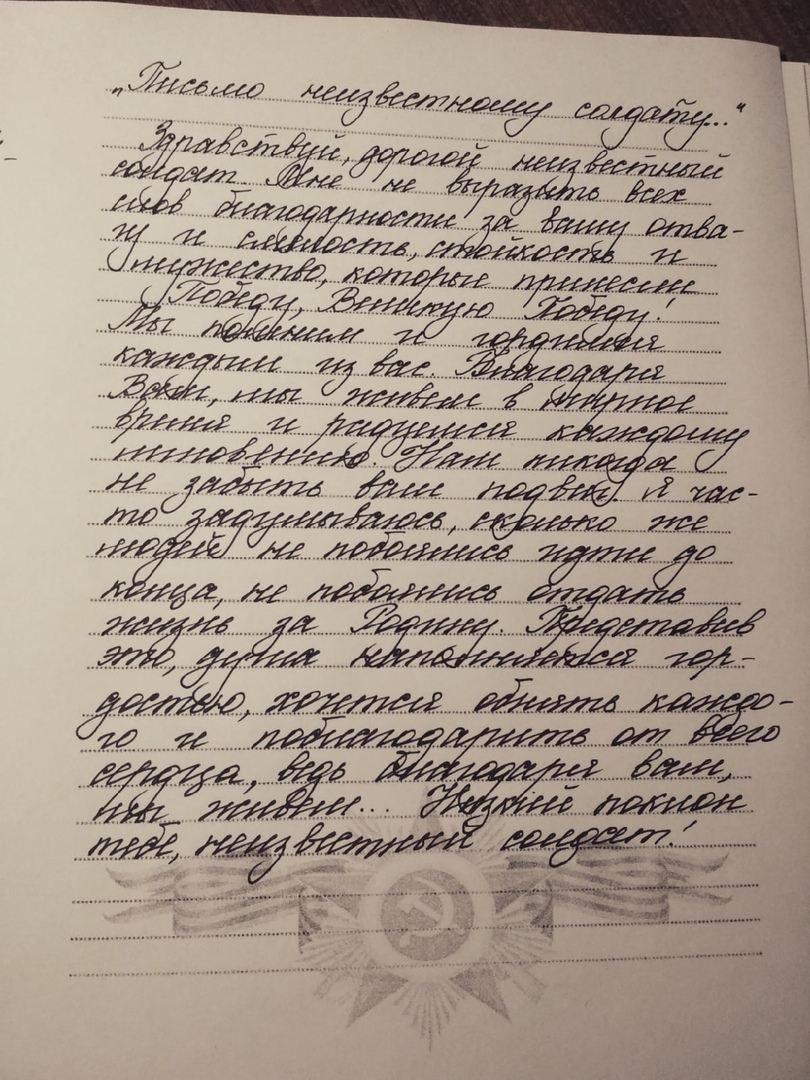 „Письмо неизвестному солдату..."
Здравствуй, дорогой неизвестный
солдат. Мне не выразить всех
слов благодарности за вашу отва-
гу и смелость, стойкость и
мужество, которые принесли
Победу, Великую Победу!
Мы помним и гордимся
каждым из вас. Благодаря
Вам, мы живем в мирное
время и радуемся каждому
мгновению. Нам никогда
не забыть ваш подвиг. Я час-
то задумываюсь, сколько же
людей не побоялись идти до
конца, не побоялись отдать
жизнь за Родину. Представив
это, душа наполняется гор-
достью, хочется обнять каждо-
го и поблагодарить от всего
сердца, ведь благодаря вам,
мы живем... Низкий поклон
тебе, неизвестный солдат!